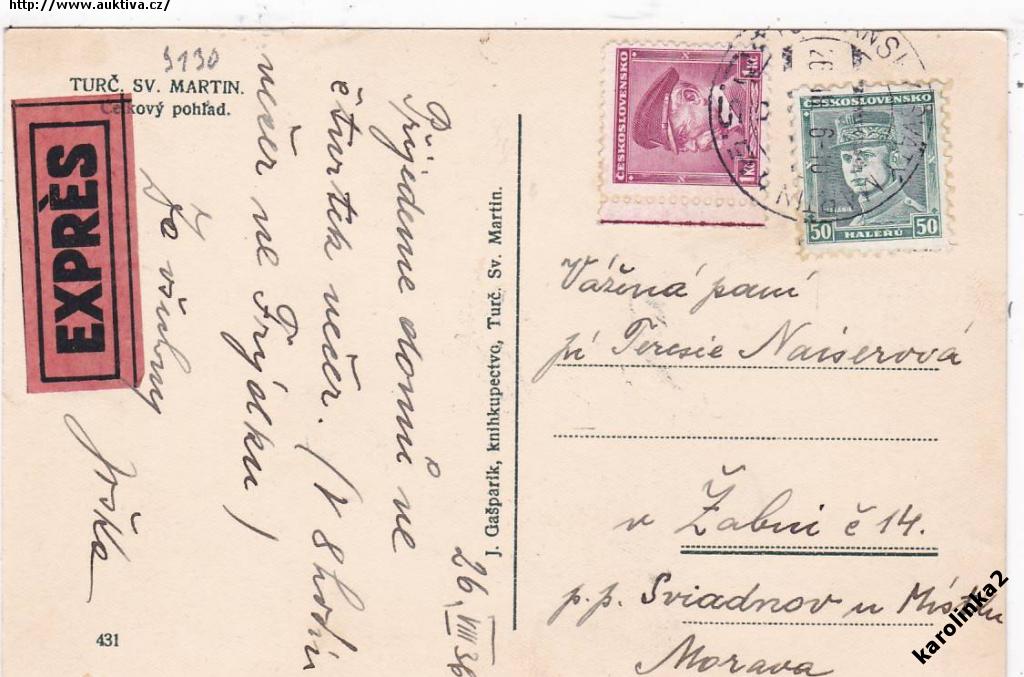 http://www.auktiva.cz/
9130
TURČ. SV. MARTIN.
Celkový pohľad.
EXPRÈS
Přijedeme domů ve
čtvrtek večer. (V 8 hodin
večer ve Frýdku)
Za všechny
Joška
26. VIII 36
431
J. Gašparík, kníhkupectvo, Turč. Sv. Martin.
ČESKOSLOVENSKO
1 Kč
1 Kč
ČESKOSLOVENSKO
50 HALÉŘŮ 50
Vážená paní
pí Teresie Naiserová
v Žabni č 14.
p.p. Sviadnov u Místku
Morava
karolinka2